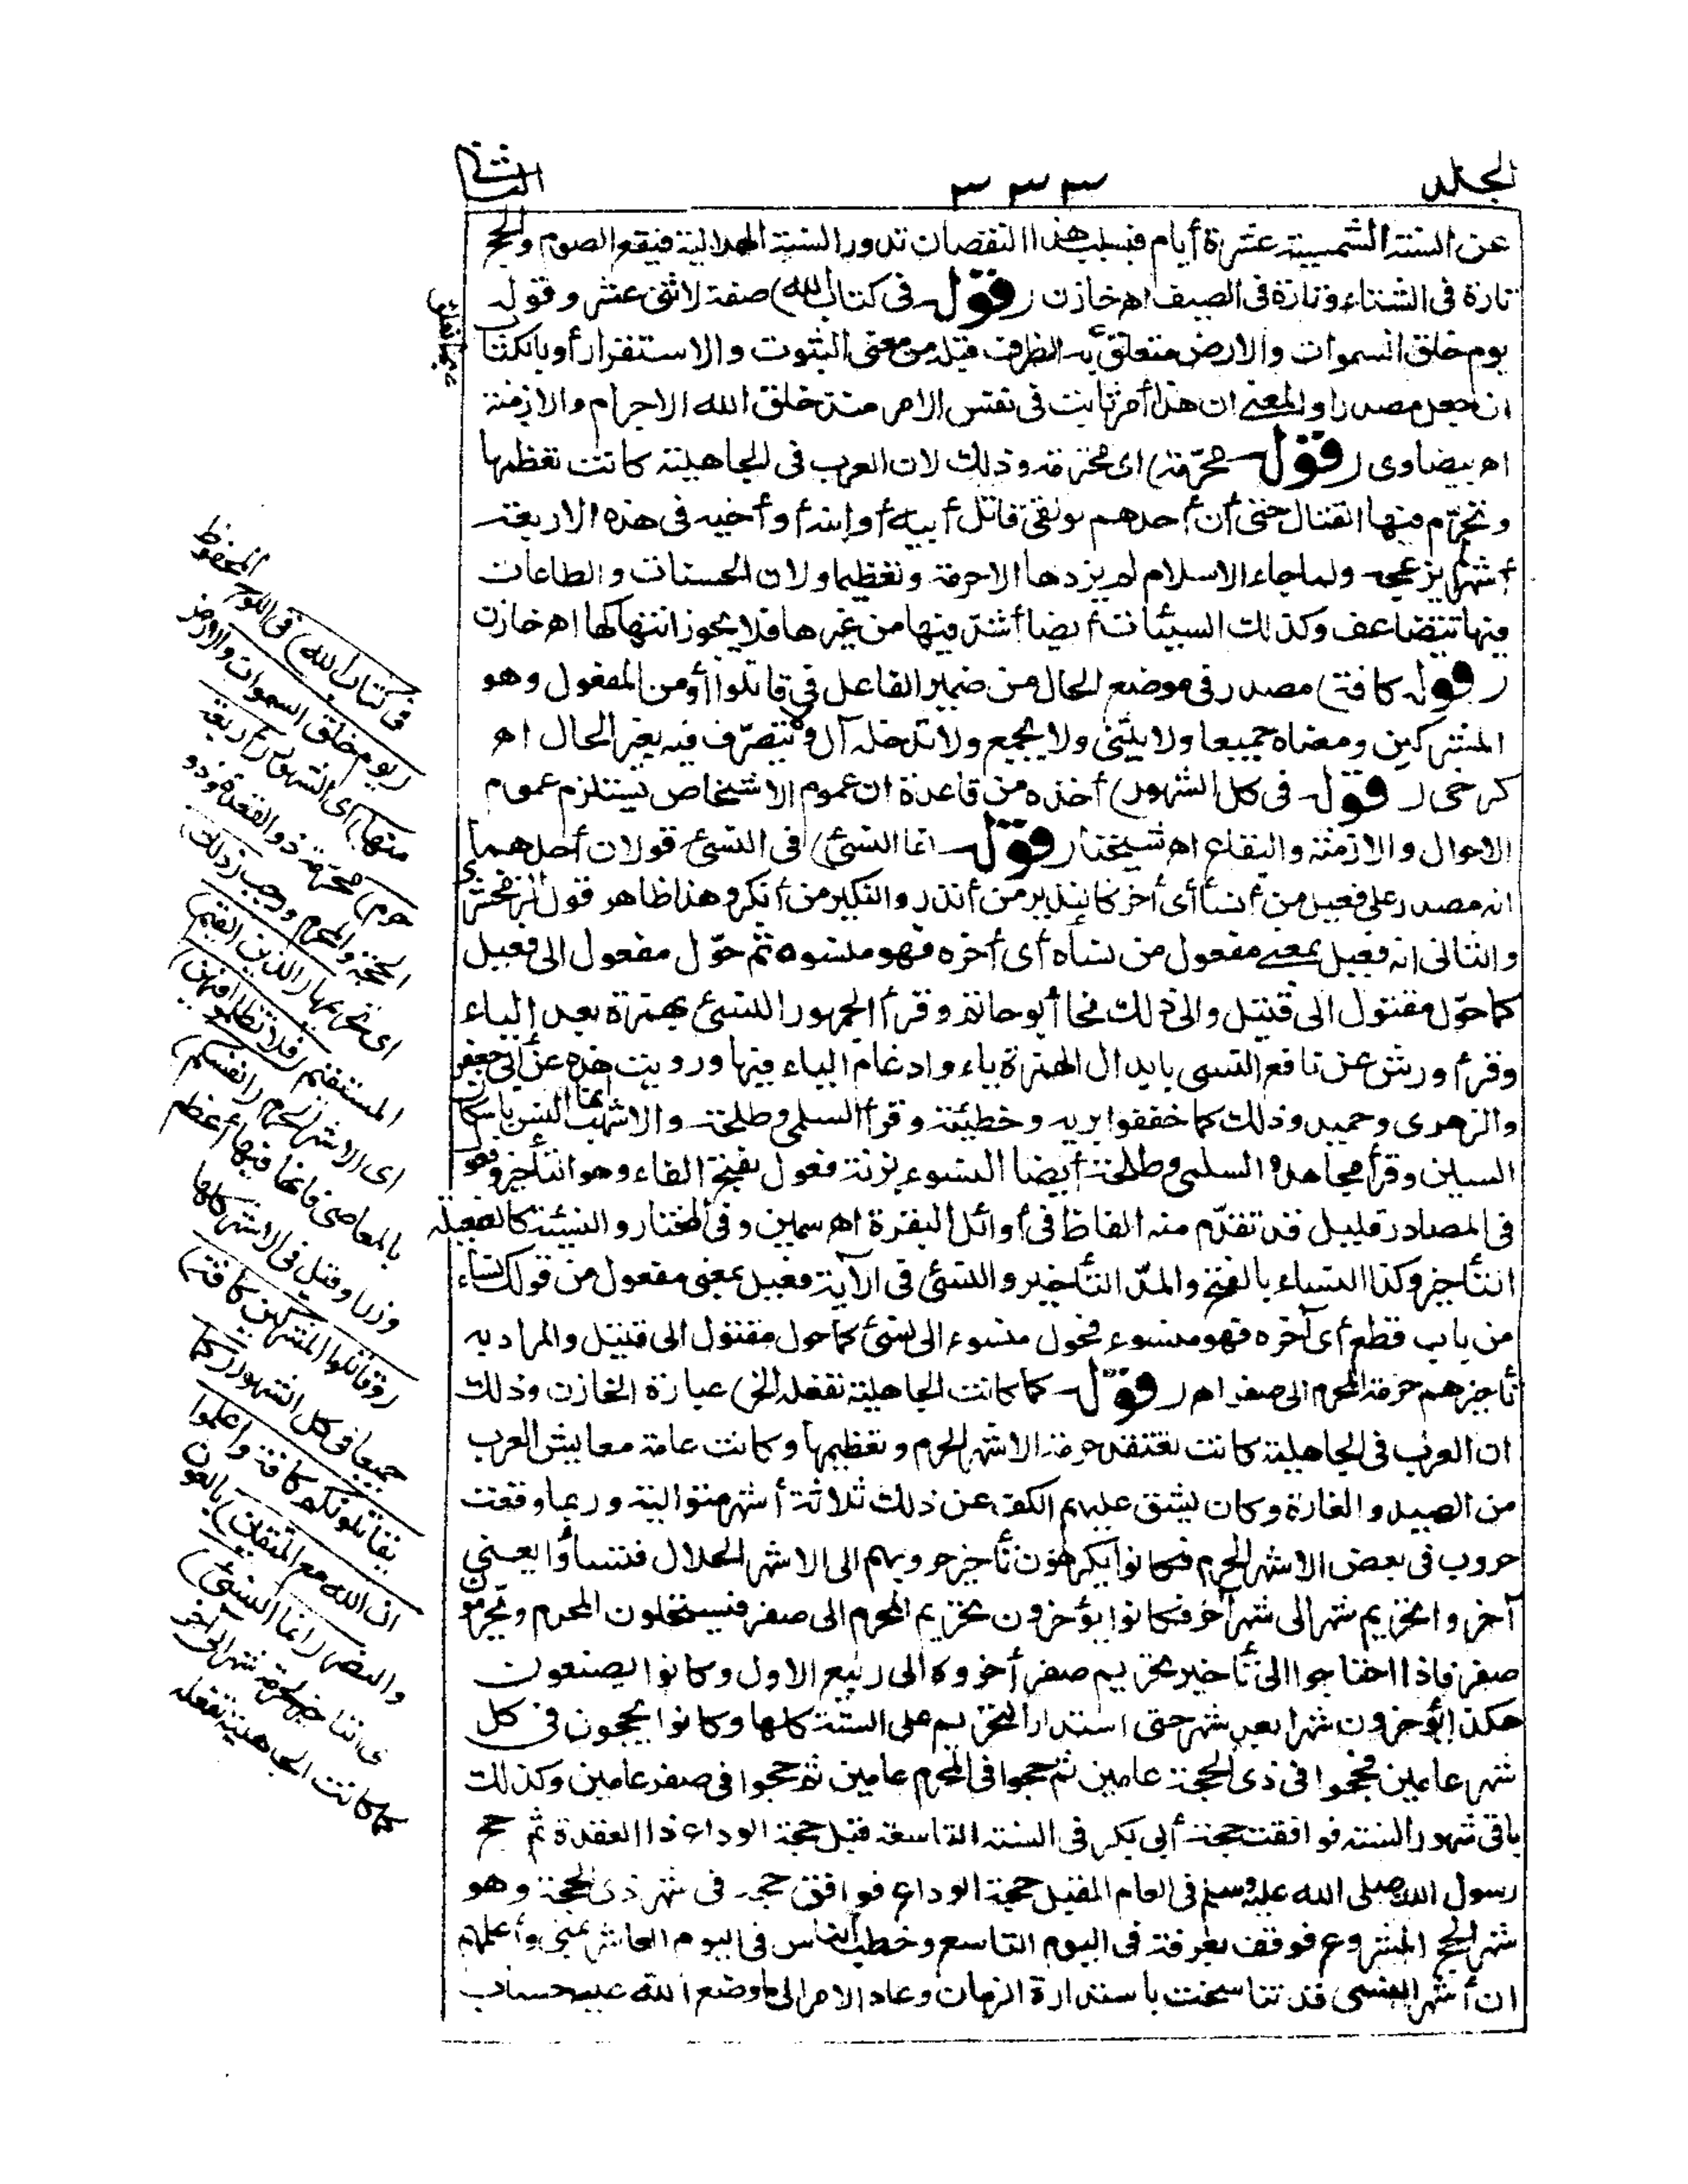 الجلد
٣٣٣
الثانى
عن السنة الشمسية عشرة أيام فبسبب هذا النقصان تدور السنة الهلالية فيقع الصوم والحج
تارة فى الشتاء وتارة فى الصيف اه خازن (قوله فى كتاب الله) صفة لاثنى عشر وقوله
يوم خلق السموات والارض متعلق بما تعلق به الظرف قبله من معنى الثبوت والاستقرار أو بالكتاب
ان جعل مصدرا والمعنى ان هذا أمر ثابت فى نفس الامر منذ خلق الله الاجرام والازمنة
اه بيضاوى (قوله محرّمة) اى محترمة وذلك لان العرب فى الجاهلية كانت تعظمها
وتحرّم فيها القتال حتى أن أحدهم لو لقى قاتل أبيه أو ابنه أو أخيه فى هذه الاربعة
أشهر لم يزعجه ولما جاء الاسلام لم يزدها الا حرمة وتعظيما ولان الحسنات والطاعات
فيها تتضاعف وكذلك السيئات أيضا أشد فيها من غيرها فلا يجوز انتهاكها اه خازن
(قوله كافة) مصدر فى موضع الحال من ضمير الفاعل فى قاتلوا أو من المفعول وهو
المشركين ومعناه جميعا ولا يثنى ولا يجمع ولا تدخله آل ولا يتصرّف فيه بغير الحال اه
كرخى (قوله فى كل الشهور) أخذه من قاعدة ان عموم الاشخاص يستلزم عموم
الاحوال والازمنة والبقاع اه شيخنا (قوله انما النسئ) فى النسئ قولان أحدهما
انه مصدر على فعيل من أنسأ أى أخر كالنذير من أنذر والنكير من أنكر وهذا ظاهر قول الزمخشرى
والثانى انه فعيل بمعنى مفعول من نسأه أى أخره فهو منسوء ثم حوّل مفعول الى فعيل
كما حوّل مقتول الى قتيل والى ذلك نحا أبو حاتم وقرأ الجمهور النسئ بهمزة بعد الياء
وقرأ ورش عن نافع النسى بابدال الهمزة ياء وادغام الياء فيها ورويت هذه عن أبى جعفر
والزهرى وحميد وذلك كما خففوا برية وخطيئة وقرأ السلمى وطلحة والاشهب النسئ باسكان
السين وقرأ مجاهد والسلمى وطلحة أيضا النسوء بزنة فعول بفتح الفاء وهو التأخير وفعول
فى المصادر قليل قد تقدّم منه الفاظ فى أوائل البقرة اه سمين وفى المختار والنسيئة كالفعيلة
التأخير وكذا النساء بالفتح والمدّ التأخير والنسئ فى الآية فعيل بمعنى مفعول من قولك نسأه
من باب قطع أى آخره فهو منسوء فحول منسوء الى نسئ كما حول مقتول الى قتيل والمراد به
تأخيرهم حرمة المحرم الى صفر اه (قوله كما كانت الجاهلية تفعله الخ) عبارة الخازن وذلك
ان العرب فى الجاهلية كانت تعتقد حرمة الاشهر الحرم وتعظيمها وكانت عامة معايش العرب
من الصيد والغارة وكان يشق عليهم الكف عن ذلك ثلاثة أشهر متوالية وربما وقعت
حروب فى بعض الاشهر الحرم فكانوا يكرهون تأخير حروبهم الى الاشهر الحلال فنسأوا يعنى
آخروا تحريم شهر الى شهر آخر فكانوا يؤخرون تحريم المحرم الى صفر فيستحلون المحرم ويحرّمون
صفر فاذا احتاجوا الى تأخير تحريم صفر أخروه الى ربيع الاول وكانوا يصنعون
هكذا يؤخرون شهرا بعد شهر حتى استدار التحريم على السنة كلها وكانوا يحجون فى كل
شهر عامين فحجوا فى ذى الحجة عامين ثم حجوا فى المحرم عامين ثم حجوا فى صفر عامين وكذلك
باقى شهور السنة فوافقت حجة أبى بكر فى السنة التاسعة قبل حجة الوداع ذا القعدة ثم حج
رسول الله صلى الله عليه وسلم فى العام المقبل حجة الوداع فوافق حجه فى شهر ذى الحجة وهو
شهر الحج المشروع فوقف بعرفة فى اليوم التاسع وخطب الناس فى اليوم العاشر بمنى وأعلمهم
ان أشهر النسئ قد تناسخت باستدارة الزمان وعاد الامر الى ما وضع الله عليه حساب
فى كتاب الله) فى اللوح المحفوظ
(يوم خلق السموات والارض
منها) اى الشهور (أربعة
حرم) محرّمة ذو القعدة وذو
الحجة والمحرم ورجب (ذلك)
اى تحريمها (الدين القيم)
المستقيم (فلا تظلموا فيهن)
اى الاشهر الحرم (أنفسكم)
بالمعاصى فانها فيها أعظم
وزرا وقيل فى الاشهر كلها
(وقاتلوا المشركين كافة)
جميعا فى كل الشهور (كما
يقاتلونكم كافة واعلموا
ان الله مع المتقين) بالعون
والنصر (انما النسئ)
اى التأخير لحرمة شهر الى آخر
كما كانت الجاهلية تفعله